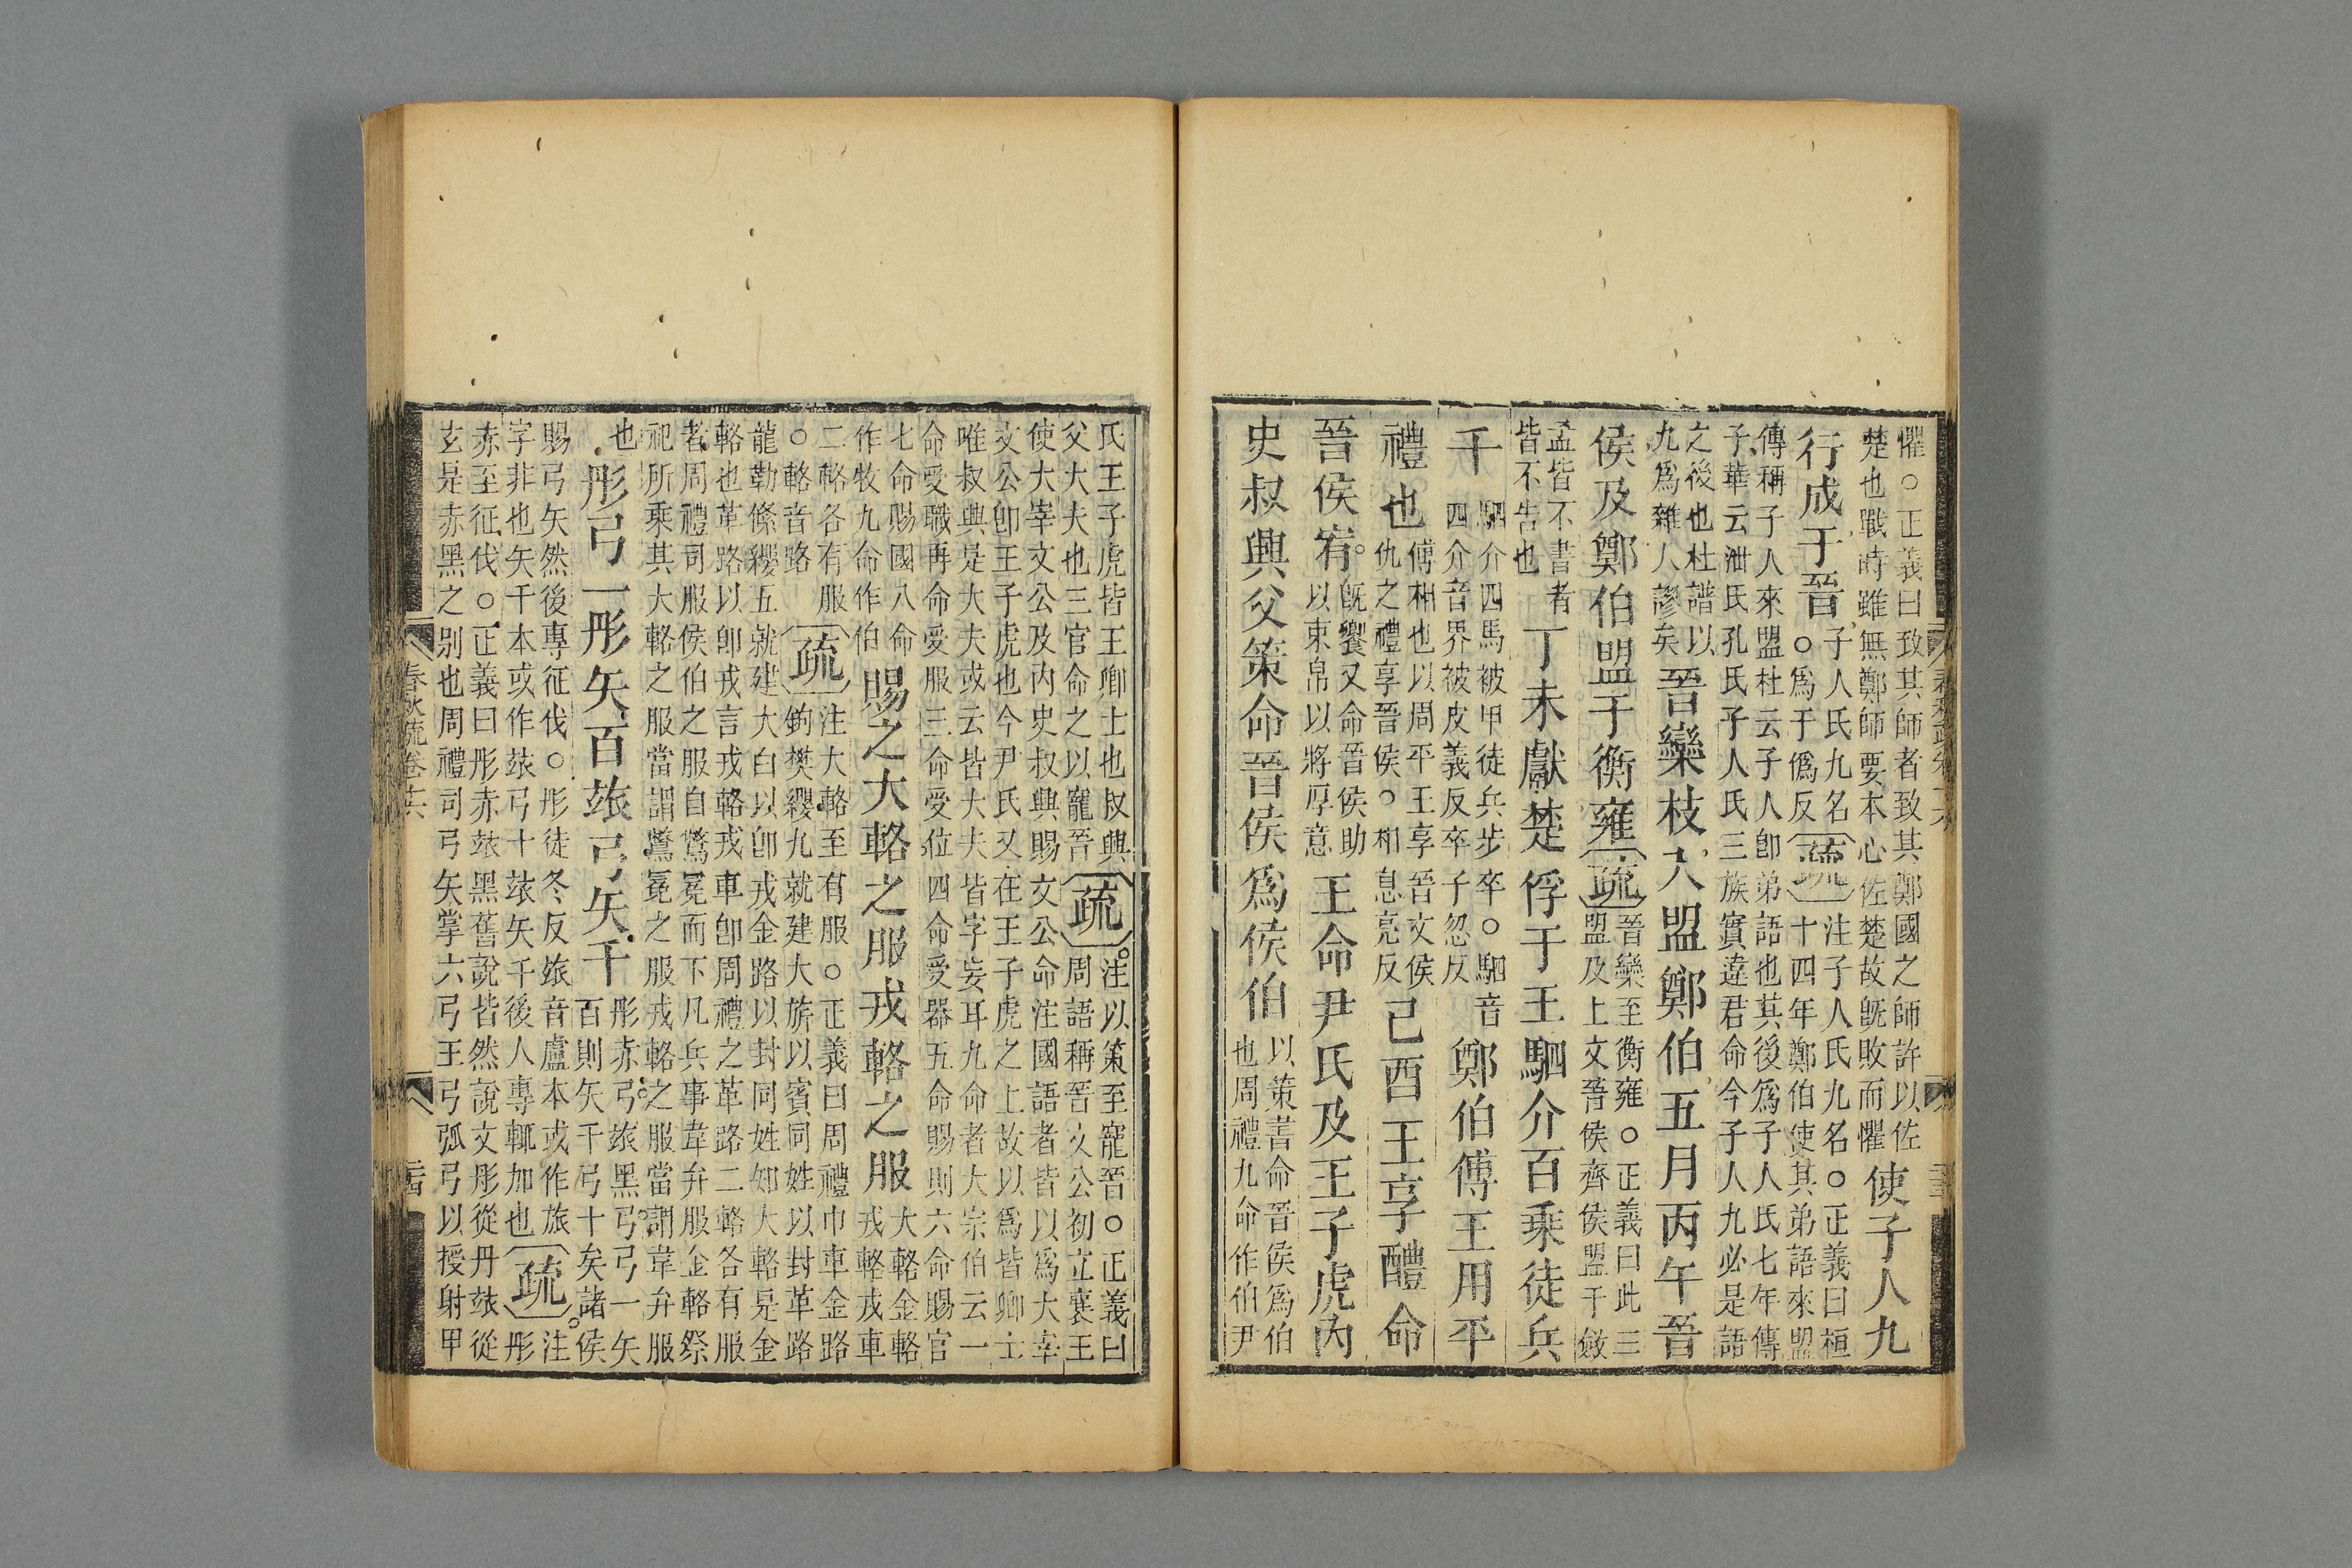 懼○正義曰致其師者致其鄭國之師許以佐
楚也戰時雖無鄭師要本心佐楚故旣敗而懼
使子人九
行成于晉
子人氏九名
○爲于僞反
疏
注子人氏九名○正義曰桓
十四年鄭伯使其弟語來盟
傳稱子人來盟杜云子人卽弟語也其後爲子人氏七年傳
子華云泄氏孔氏子人氏三族實違君命今子人九必是語
之後也杜譜以
九爲雜人謬矣
晉欒枝入盟鄭伯五月丙午晉
侯及鄭伯盟于衡雍
疏
晉欒至衡雍○正義曰此三
盟及上文晉侯齊侯盟于斂
盂皆不書者
皆不告也
丁未獻楚俘于王駟介百乗徒兵
千
駟介四馬被甲徒兵步卒○駟音
四介音界被皮義反卒子忽反
鄭伯傅王用平
禮也
傅相也以周平王享晉文侯
仇之禮享晉侯○相息亮反
己酉王享醴命
晉侯宥
旣饗又命晉侯助
以束帛以將厚意
王命尹氏及王子虎内
史叔興父策命晉侯爲侯伯
以策書命晉侯爲伯
也周禮九命作伯尹
氏王子虎皆王卿士也叔興
父大夫也三官命之以寵晉
疏
注以策至寵晉○正義曰
周語稱晉文公初立襄王
使大宰文公及内史叔興賜文公命注國語者皆以爲大宰
文公卽王子虎也今尹氏又在王子虎之上故以爲皆卿士
唯叔興是大夫或云皆大夫皆字妄耳九命者大宗伯云一
命受職再命受服三命受位四命受器五命賜則六命賜官
七命賜國八命
作牧九命作伯
賜之大輅之服戎輅之服
大輅金輅
戎輅戎車
二輅各有服
○輅音路
疏
注大輅至有服○正義曰周禮巾車金路
鉤樊纓九就建大旂以賓同姓以封革路
龍勒條纓五就建大白以卽戎金路以封同姓知大輅是金
輅也革路以卽戎言戎輅戎車卽周禮之革路二輅各有服
者周禮司服侯伯之服自鷩冕而下凡兵事韋弁服金輅祭
祀所乗其大輅之服當謂鷩冕之服戎輅之服當謂韋弁服
也
彤弓一彤矢百玈弓矢千
彤赤弓玈黑弓弓一矢
百則矢千弓十矣諸侯
賜弓矢然後專征伐○彤徒冬反玈音盧本或作旅
字非也矢千本或作玈弓十玈矢千後人專輒加也
疏
注
彤
赤至征伐○正義曰彤赤玈黑舊說皆然說文彤從丹玈從
玄是赤黑之别也周禮司弓矢掌六弓王弓弧弓以授射甲
春秋疏卷十六